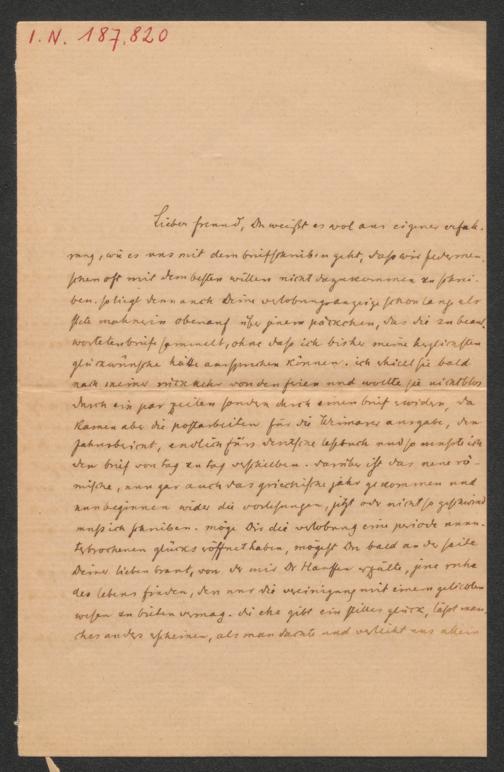 I. N. 187.820
Lieber freund, Du weißt es wol aus eigener erfah-
rung, wie es uns mit dem briefschreiben geht, dass wir federmen-
schen oft mit dem besten willen nicht dazukommen zu schrei-
ben. so liegt denn auch Deine verlobungsanzeige schon lang als
stete mahnerin obenauf über jenem päckchen, das die zu beant-
wortenden briefe sammelt, ohne dass ich bisher meine herzlichsten
glückwünsche hätte aussprechen können. ich erhielt sie bald
nach meiner rückkehr von den ferien und wollte sie nicht blos
durch ein par zeilen sondern durch einen brief erwidern, da
kamen aber die postarbeiten für die Weimarer ausgabe, den
Jahresbericht, endlich fürs deutsche lesebuch und so musste ich
den brief von tag zu tag verschieben. darüber ist das neue rö-
mische, nun gar auch das griechische jahr gekommen und
nun beginnen wider die vorlesungen, jetzt oder nicht so geschwind
muss ich schreiben. möge Dir die verlobung eine periode unun-
terbrochenen glücks eröffnet haben, mögest Du bald an der seite
Deiner lieben braut, von der mir Dr Hauffen erzälte, jene ruhe
des lebens finden, den nur die vereinigung mit einem geliebten
wesen zu bieten vermag. die ehe gibt ein stilles glück, lässt man-
ches anders erscheinen, als man dachte und verleiht uns allem